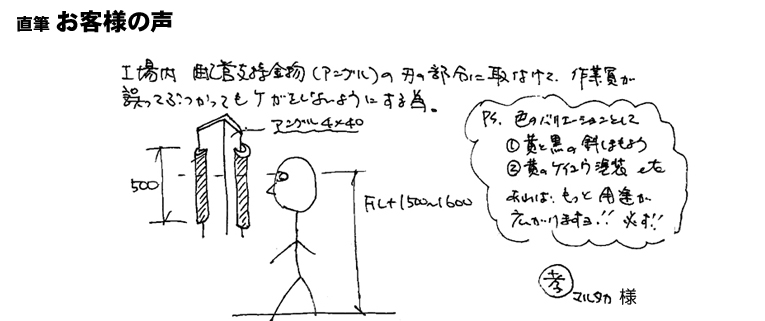 直筆 お客様の声
工場内 配管支持金物(アングル)の刃の部分に取付けて、作業員が
誤ってぶつかってもケガをしないようにする為。
アングル4×40
500
FL+1500~1600
PS. 色のバリエーションとして
①黄と黒の斜しまもよう
②黄のケイコウ塗装 etc
あれば、もっと用途が
広がりますヨ!! 必ず!!
孝 マルタカ 様